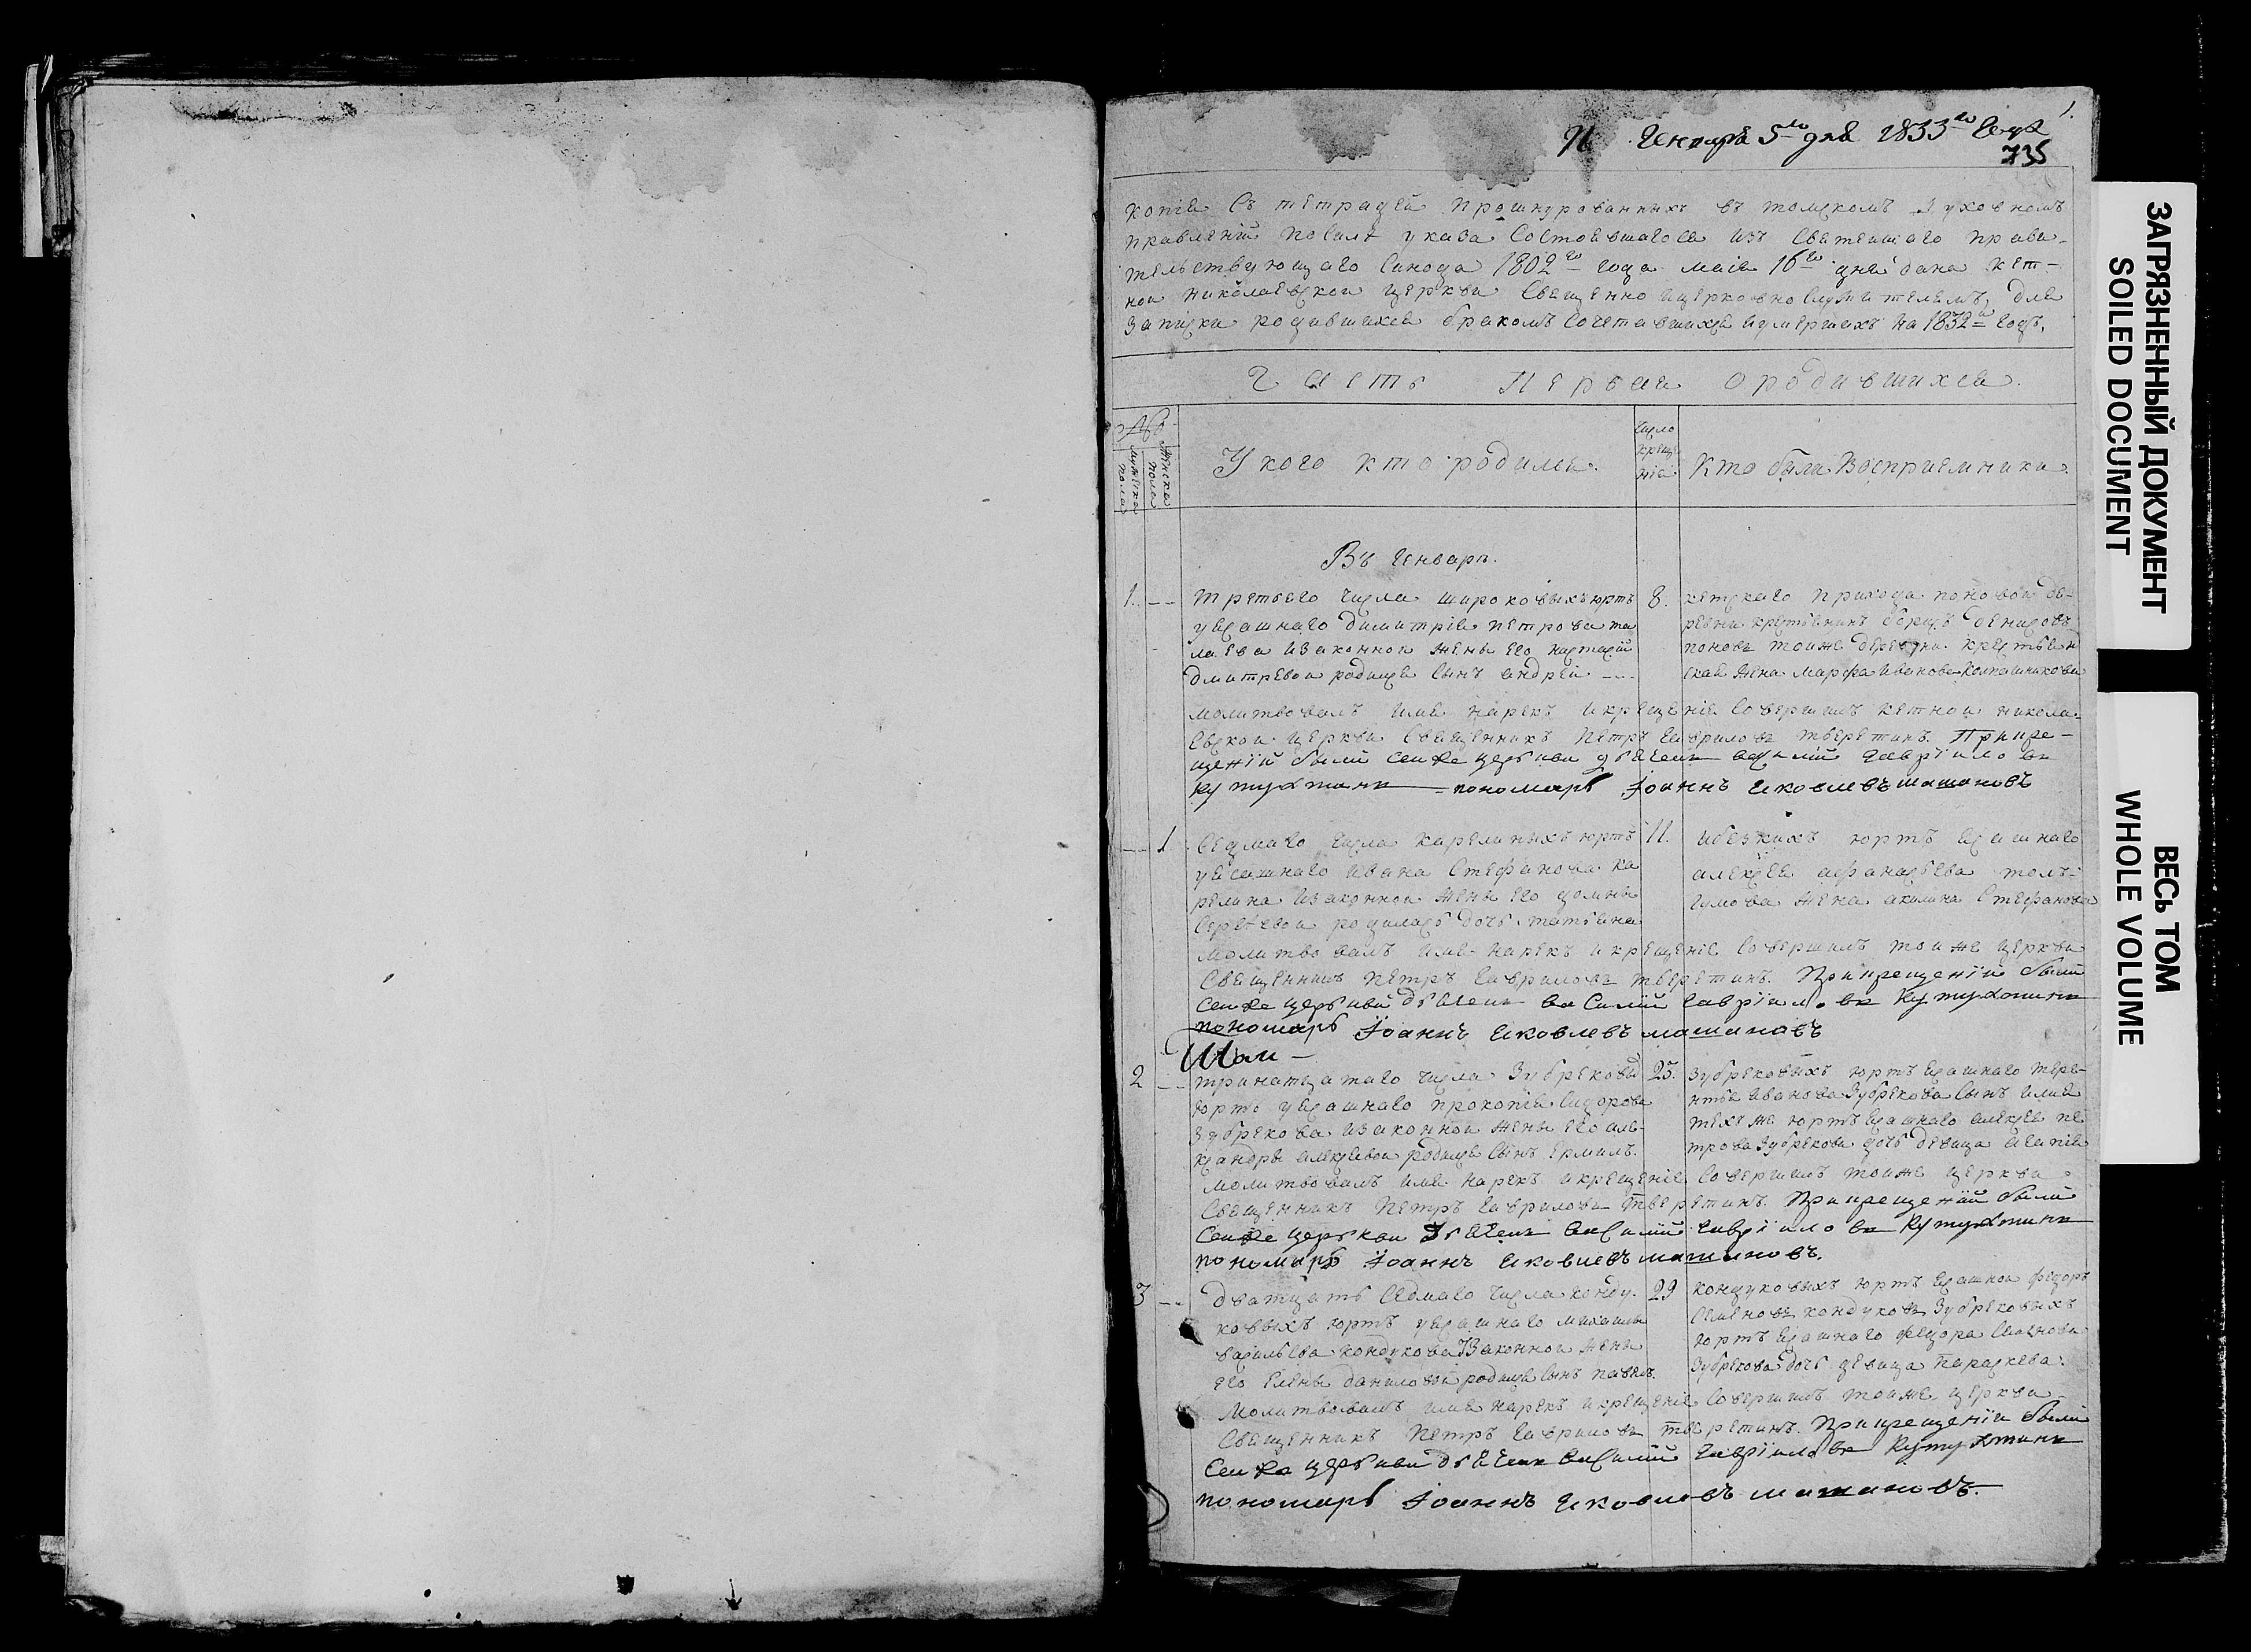 1.
Генваря 5го дня 1833го года
735
копія Съ тетрадей прошнурованныхъ въ томскомъ духовномъ
правленій по силѣ указа Состоявшагося изъ Святейшаго прави-
тельствующаго Синода 1802го года маія 16го дня дана кет-
ной николаевской церкви Священно ицерковно служителемъ, для
записки родившихся бракомъ Сочетавшихся иумершихъ на 1832й годъ.
Часть Первая ородившихся.
мужеска пола
женска пола
У кого кто родился.
число креще нія
Кто были Восприемники.
Въ Генварѣ.
1. третьего числа широковыхъ юртъ
уясашнаго димитрія петрова
изаконной жены его настасій
дмитревой родился сынъ андрей
8. кетскаго прихода поновой де-
ревни крестьянинъ
поновъ тоиже деревни крестьян
ская жена марфа иванова
молитвовалъ имя нарекъ икрещеніе Совершилъ кетной никола-
евской церкви Священникъ петръ гавриловъ тверетинъ. При кре-
щеній были сеи же церкви дьячекъ василій гавріиловъ
кутухтинъ пономарь Іоаннъ яковлевъ машановъ
1 Седмаго числа карелиныхъ юртъ
уясашнаго ивана Стефанова ка
релина изаконной жены его домны
Сергѣевой родилась дочь татьяна
11. юртъ ясашнаго
алексея афанасьева
жена акилина Стефанова
молитвовалъ имя нарекъ икрещеніе Совершилъ тоиже церкви
Священникъ петръ гавриловъ тверетинъ. При крещеніи были
сеи же церкви дьячекъ василій гавріиловъ кутухтинъ
пономарь Іоаннъ яковлевъ машановъ
2 тринатцатаго числа Зубрековы
юртъ уясашнаго прокопія Сидорова
Зубрекова изаконной жены его але-
ксандры алексеевой родился сынъ ермилъ.
25. Зубрековыхъ юртъ ясашнаго тере-
нтья иванова Зубрекова сынъ
техъ же юртъ ясашнаго алексея пе
трова Зубрекова дочь девица агапія
молитвовалъ имя нарекъ икрещеніе Совершилъ тоиже церкви
Священникъ петръ гавриловъ тверетинъ. При крещеній были
Сеи же церкви дьячекъ василій гавріиловъ кутухтинъ
пономарь Іоаннъ яковлевъ машановъ.
3 дватцать седмаго числа конду-
ковыхъ юртъ уясашнаго михаила
васильева кондукова изаконной жены
его елены даниловой родился сынъ павелъ.
29 кондуковыхъ юртъ ясашной федоръ
Семеновъ кондуковъ Зубрековыхъ
юртъ ясашнаго федора
Зубрекова дочь девица параскева.
молитвовалъ имя нарекъ икрещеніе Совершилъ тоиже церкви
Священникъ петръ гавриловъ тверетинъ. При крещеніи были
Сеи же церкви дьячекъ василій гавріиловъ кутухтинъ
пономарь Іоаннъ яковлевъ машановъ.
ЗАГРЯЗНЕННЫЙ ДОКУМЕНТ
SOILED DOCUMENT
ВЕСЬ ТОМ
WHOLE VOLUME